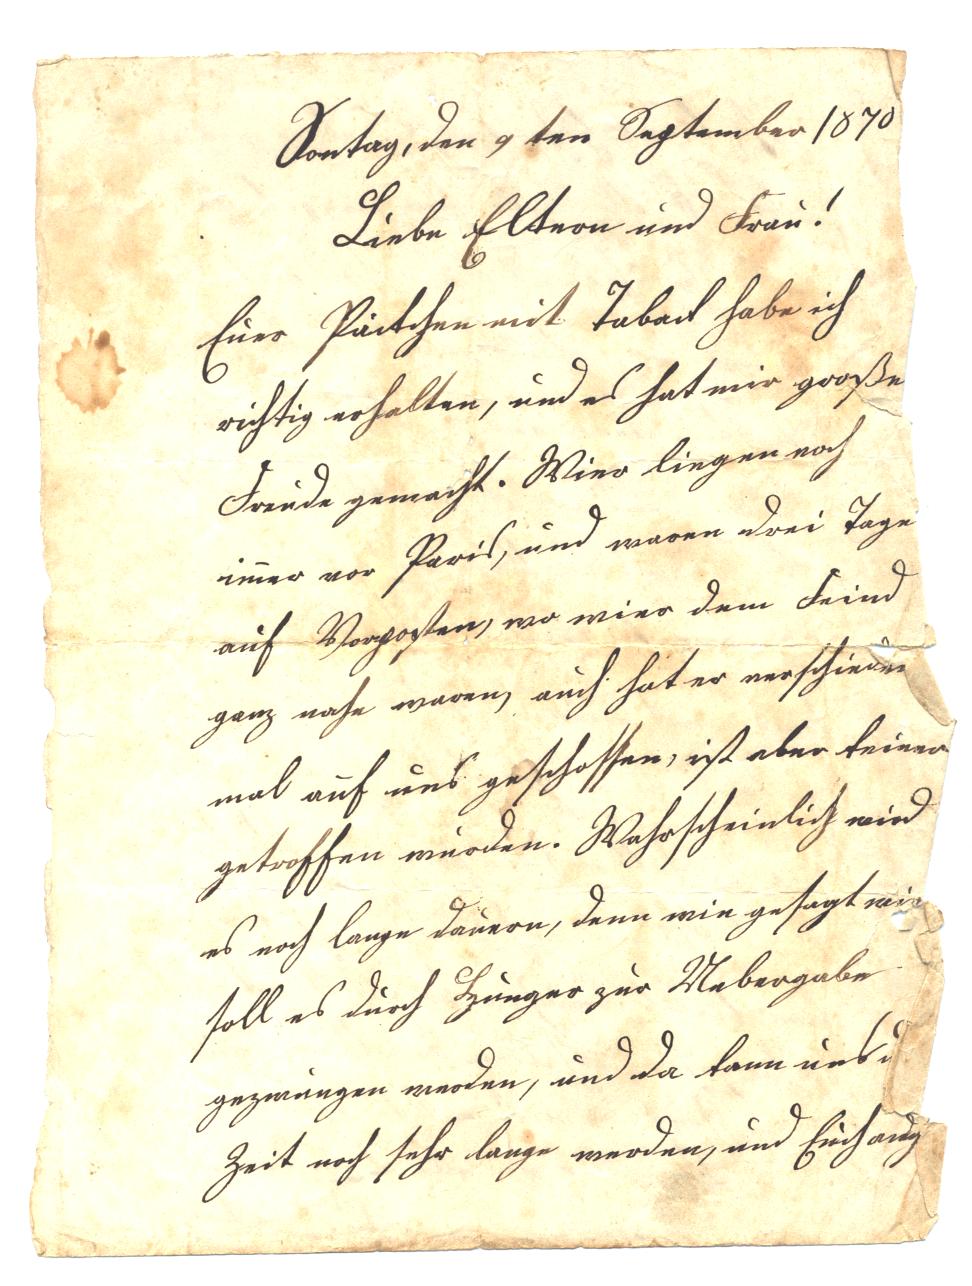 Sontag, den 9 ten September 1870
Liebe Eltern und Frau!
Euer Päckchen mit Taback habe ich
richtig erhalten, und es hat mir große
Freude gemacht. Wier liegen noch
im̅er vor Paris, und waren drei Tage
auf Vorposten, wo wier dem Feind
ganz nahe waren, auch hat er verschieden
mal auf uns geschossen, ist aber keiner
getroffen wurden. Wahrscheinlich wird
es noch lange dauern, denn wie gesagt wir
soll es durch Hunger zur Uebergabe
gezwungen werden, und da kann uns
Zeit noch sehr lange werden, und Euch auch